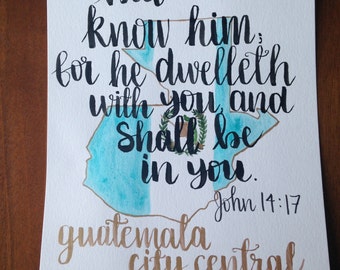 know him;
for he dwelleth
with you, and
shall be
in you.
John 14:17
guatemala
city central